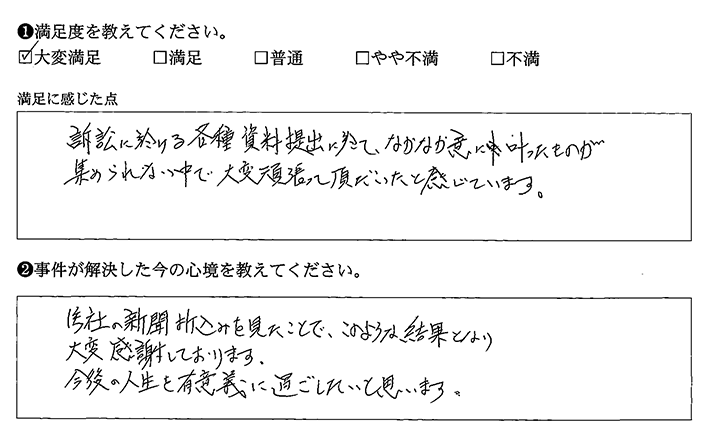 ❶満足度を教えてください。
☑大変満足 □満足 □普通 □やや不満 □不満
満足に感じた点
訴訟に於ける各種資料提出に於て、なかなか意に叶ったものが
集められない中で大変頑張って頂だいたと感じています。
❷事件が解決した今の心境を教えてください。
社の新聞折込みを見たことで、このような結果となり
大変感謝しております。
今後の人生を有意義に過ごしたいと思います。